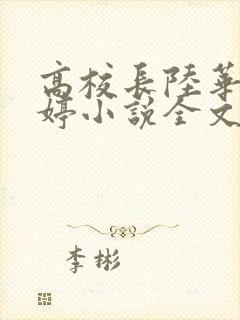 高校長陸華
婷小說全文
李彬